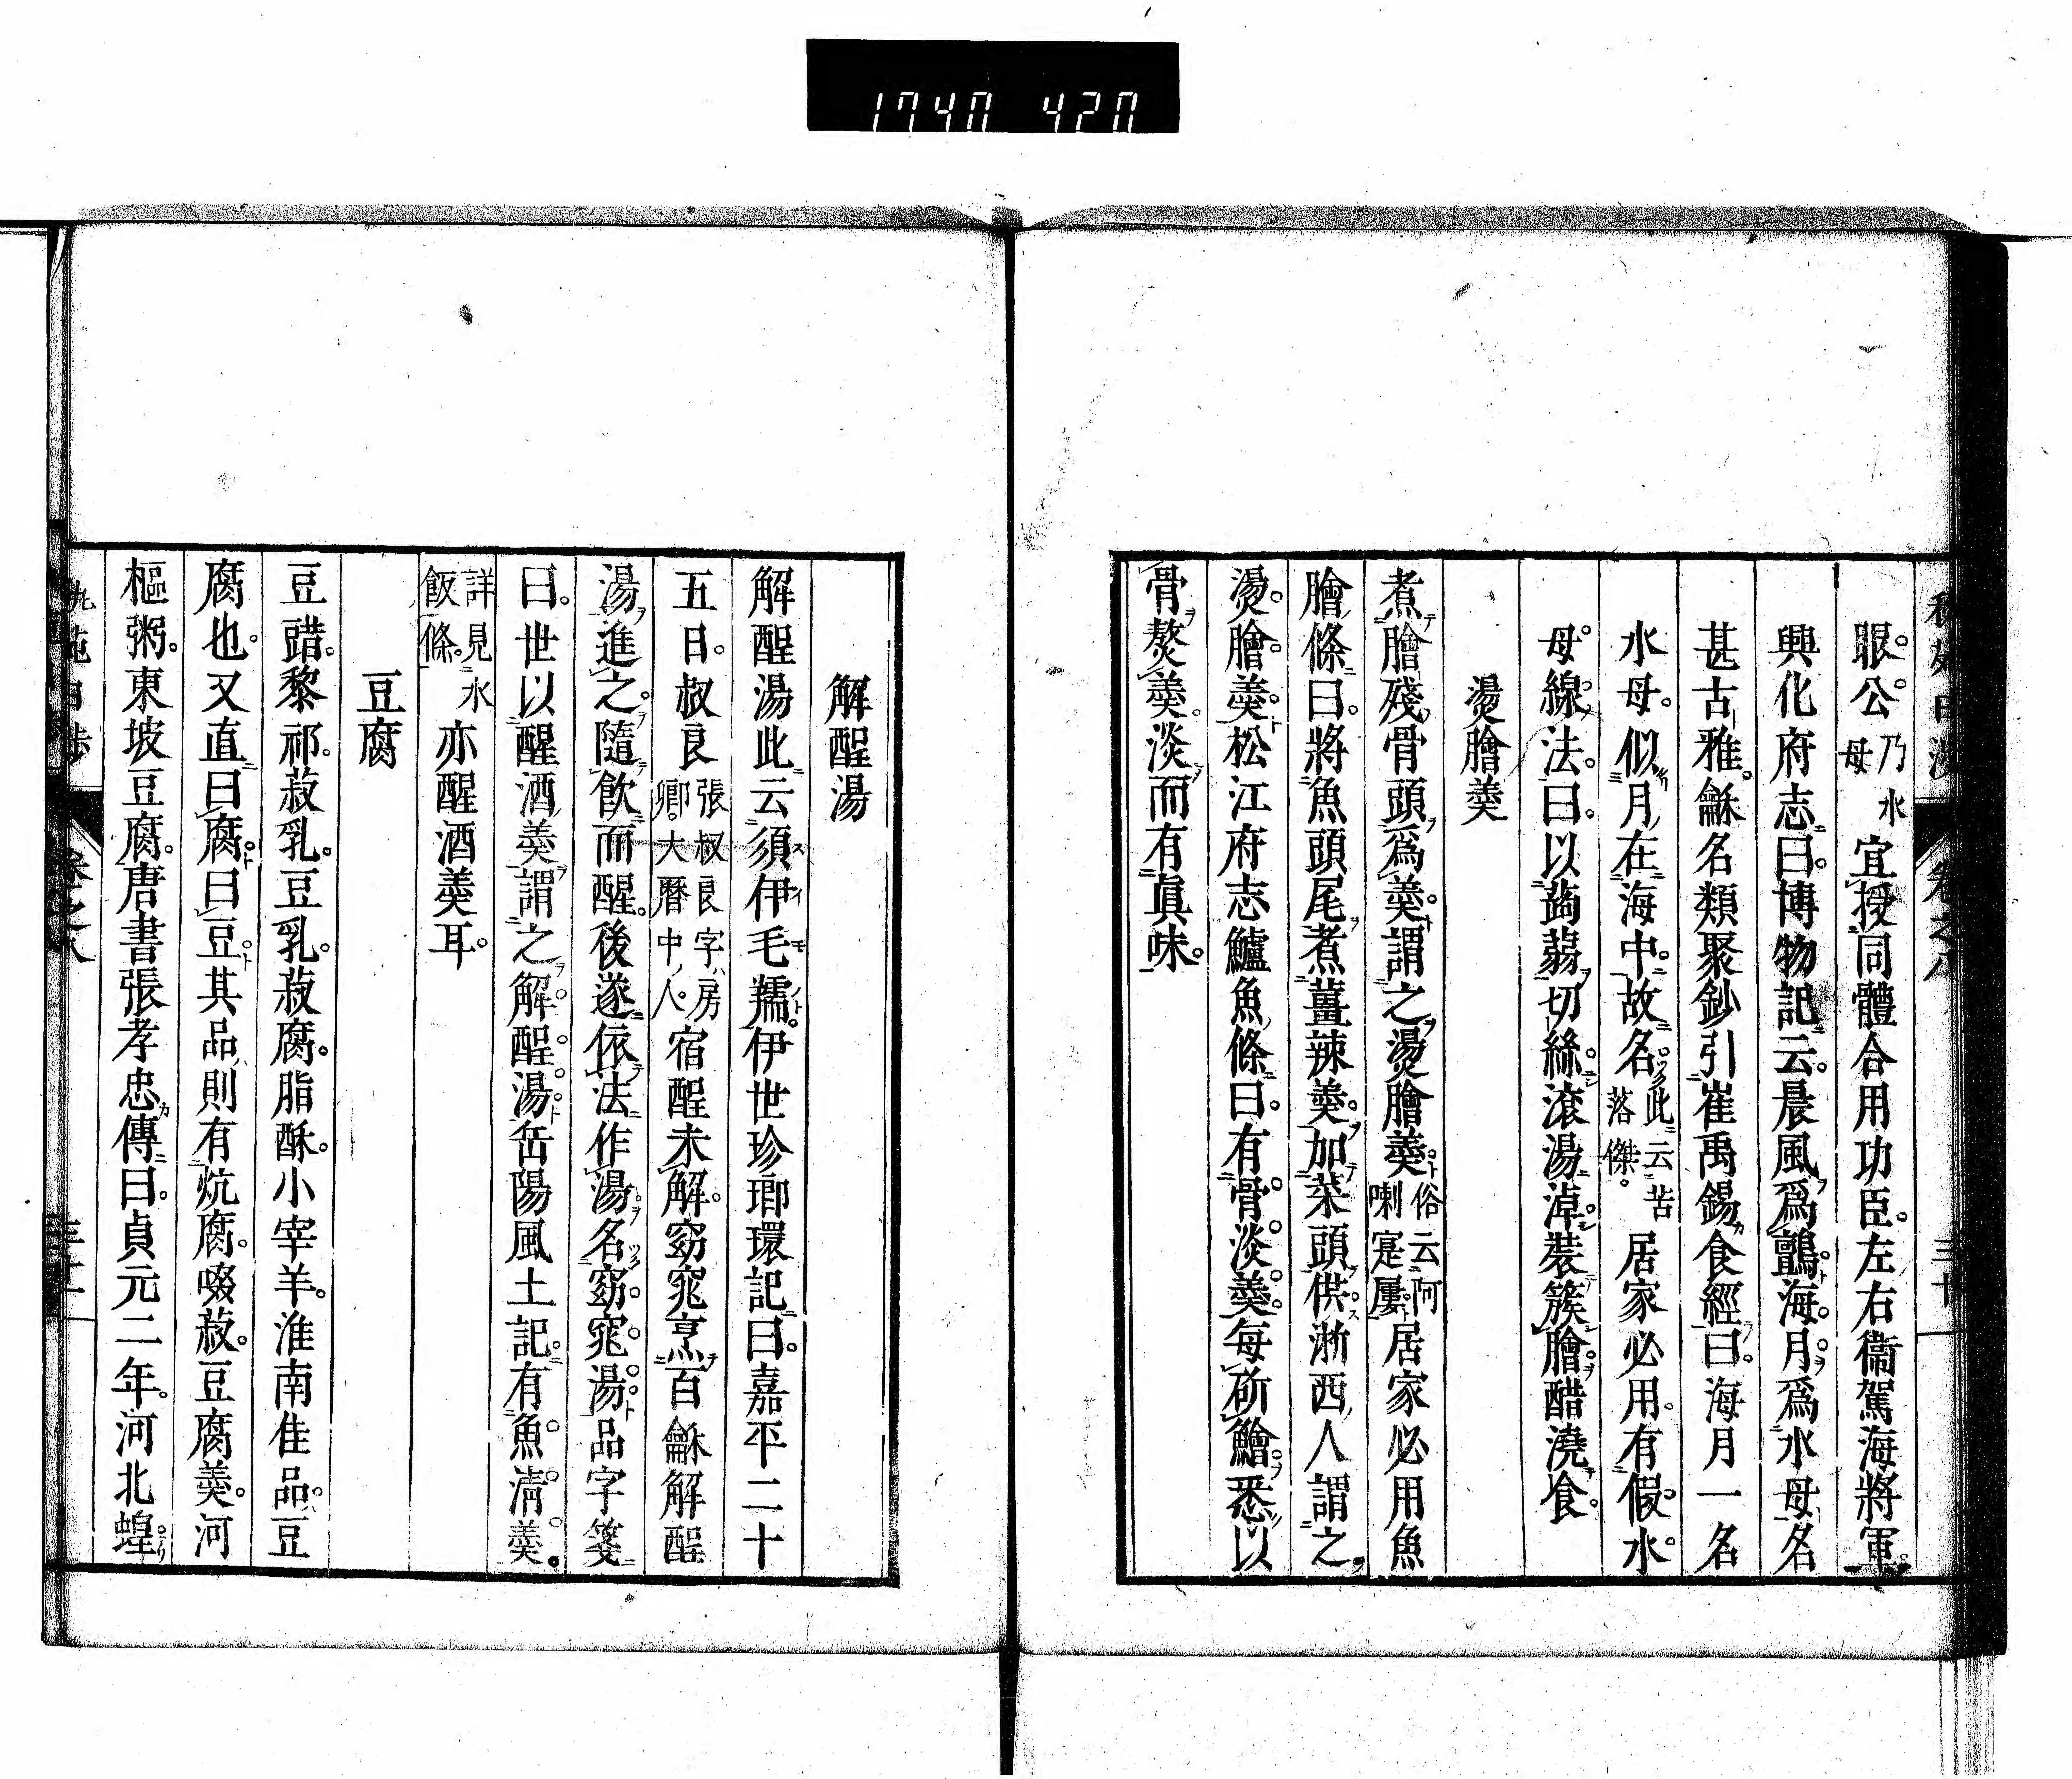 1740 420
眼公乃水母宜授同體合用功臣左右衞駕海將軍
興化府志曰博物記云晨風爲鸇海月爲水母名
甚古雅龢名類聚鈔引崔禹錫食經曰海月一名
水母似月在海中故名此云苦落傑居家必用有假水
母線法曰以蒟蒻切絲滾湯淖裝簇膾醋澆食
燙膾羮
煮膾殘骨頭爲羮謂之燙膾羮俗云阿喇寔屢居家必用魚
膾條曰將魚頭尾煮薑辣羮加菜頭供淅西人謂之
燙膾羮松江府志鱸魚條曰有骨淡羮每斫鱠悉以
骨熬羮淡而有眞味
解酲湯
解酲湯此云須伊毛孺伊世珍瑯環記曰嘉平二十
五日叔良張叔良字房卿大曆中人宿酲未解窈窕烹百龢解酲
湯進之隨飲而醒後遂依法作湯名窈窕湯品字箋
曰世以醒酒羮謂之解酲湯岳陽風土記有魚淸羮
詳見水飯條亦醒酒羮耳
豆腐
豆䜺黎祁菽乳豆乳菽腐脂酥小宰羊淮南佳品豆
腐也又直曰腐曰豆其品則有炕腐啜菽豆腐羮河
樞粥東坡豆腐唐書張孝忠傳曰貞元二年河北蝗
卷之八